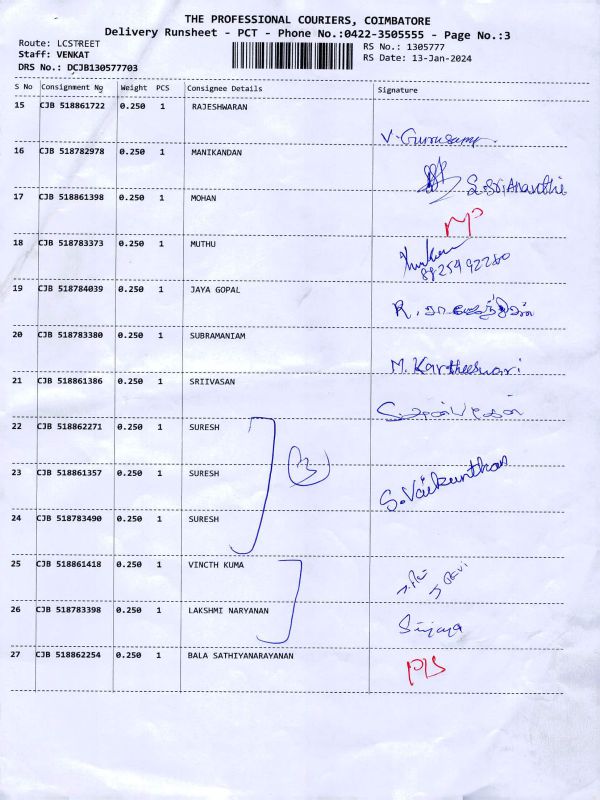 THE PROFESSIONAL COURIERS, COIMBATORE
Delivery Runsheet - PCT - Phone No.:0422-3505555 - Page No.:3
Route: LCSTREET
Staff: VENKAT
DRS No.: DCJB130577703
RS No.: 1305777
RS Date: 13-Jan-2024
S No Consignment No Weight PCS Consignee Details Signature
15 CJB 518861722 0.250 1 RAJESHWARAN
V. Gurusamy.
16 CJB 518782978 0.250 1 MANIKANDAN
17 CJB 518861398 0.250 1 MOHAN
18 CJB 518783373 0.250 1 MUTHU
8925492280
19 CJB 518784039 0.250 1 JAYA GOPAL
20 CJB 518783380 0.250 1 SUBRAMANIAM
M. Kartheeswari
21 CJB 518861386 0.250 1 SRIIVASAN
22 CJB 518862271 0.250 1 SURESH
23 CJB 518861357 0.250 1 SURESH
3
S. Vaikunthan
24 CJB 518783490 0.250 1 SURESH
25 CJB 518861418 0.250 1 VINCTH KUMA
26 CJB 518783398 0.250 1 LAKSHMI NARYANAN
27 CJB 518862254 0.250 1 BALA SATHIYANARAYANAN